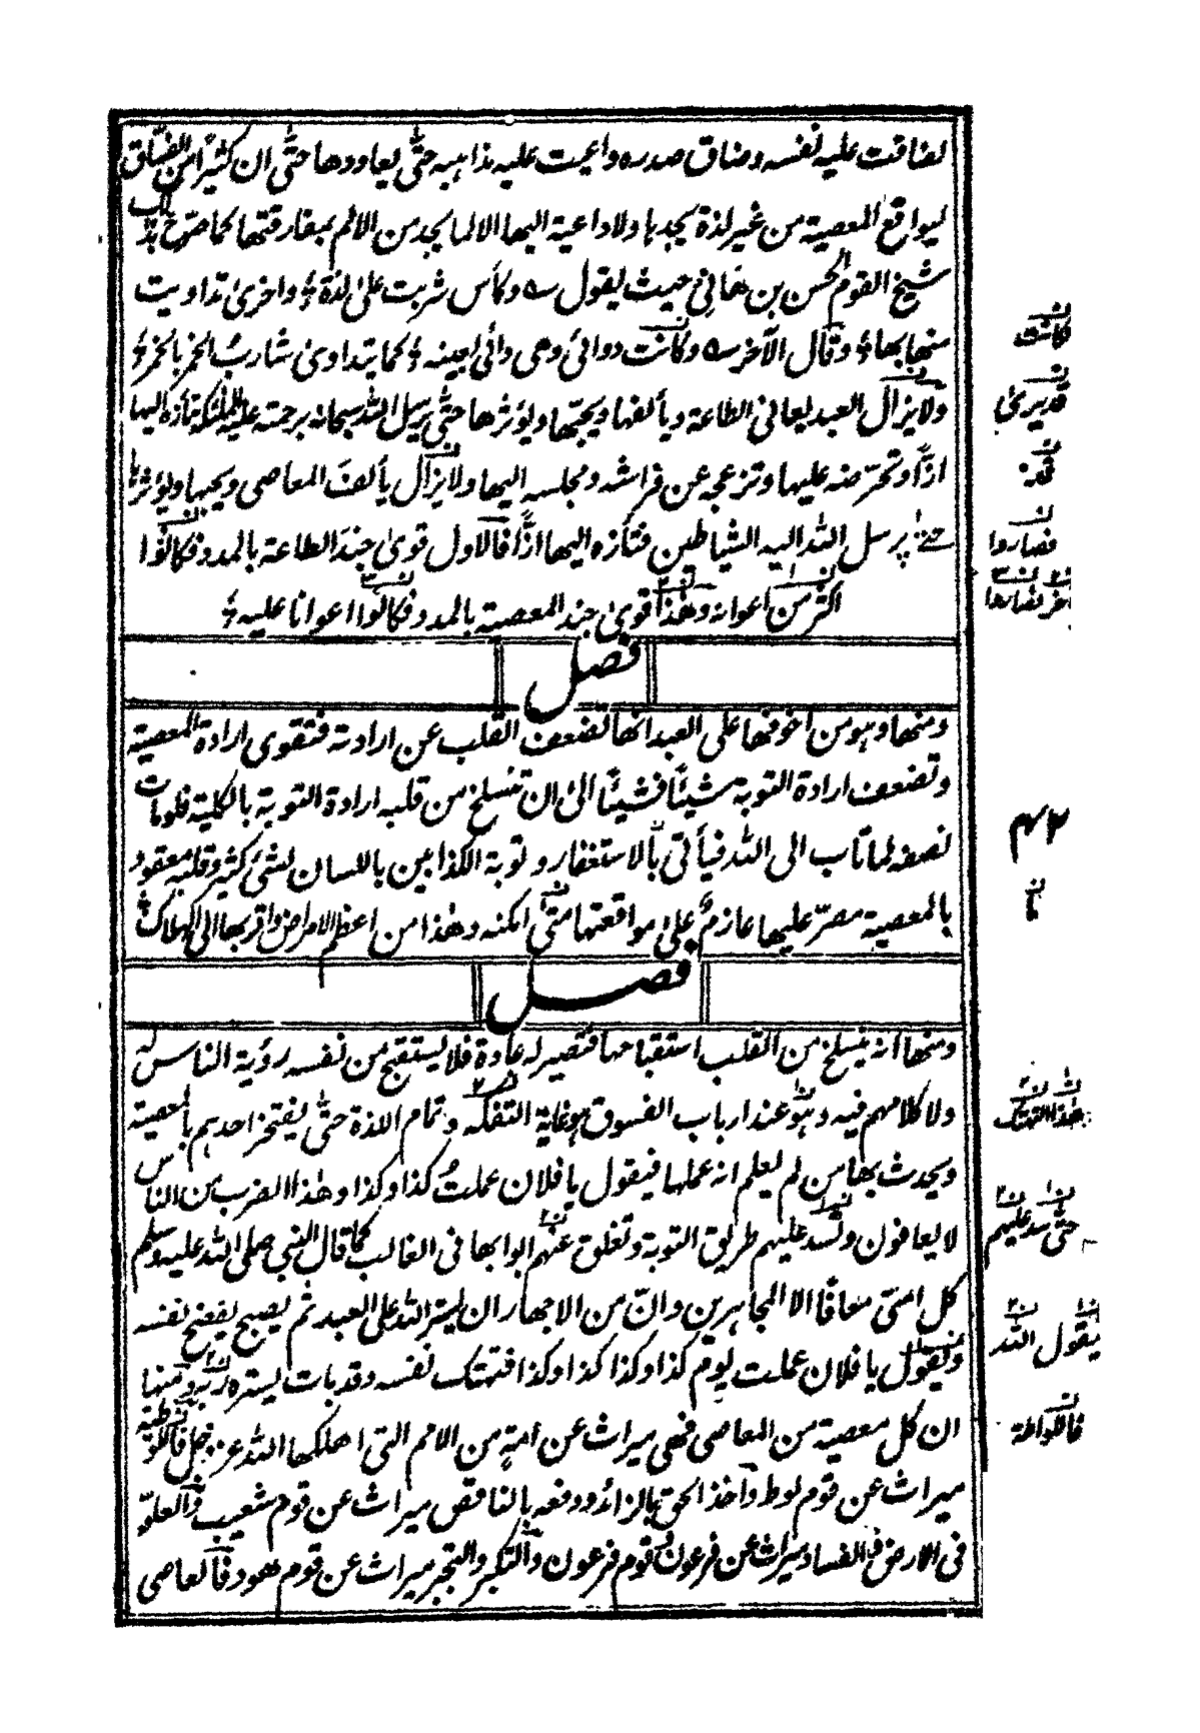 لضاقت عليه نفسه وضاق صدره واعيت عليه مذاهبه حتى يعاودها حتى ان كثيرا من الفساق
ليواقع المعصية من غير لذة يجدها ولا داعية اليها الا لما يجد من الالم بمفارقتها كما صرح بذلك
شيخ القوم الحسن بن هاني حيث يقول ؎ وكأس شربت على لذة ؛ واخرى تداويت
منها بها ؛ وقال الآخر ؎ وكانت دوائي وهي دائي بعينه ؛ كما يتداوى شارب الخمر بالخمر ؛
ولا يزال العبد يعاني الطاعة ويألفها ويحبها ويؤثرها حتى يرسل الله سبحانه برحمته عليه الملئكة تأزه اليها
ازًّا وتحرضه عليها وتزعجه عن فراشه ومجلسه اليها ولا يزال يألف المعاصي ويحبها ويؤثرها
حتى يرسل الله اليه الشياطين فتأزه اليها ازًّا فالاول قوى جند الطاعة بالمدد فكانوا
اكثر من اعوانه وهذا قوى جند المعصية بالمدد فكانوا اعوانا عليه ؛
فصل
ومنها وهو من اخوفها على العبد انها تضعف القلب عن ارادته فتقوى ارادة المعصية
وتضعف ارادة التوبة شيئًا فشيئًا الى ان تنسلخ من قلبه ارادة التوبة بالكلية فلو مات
نصفه لما تاب الى الله فيأتي بالاستغفار وتوبة الكذابين باللسان لشئ كثير وقلبه معقود
بالمعصية مصرّ عليها عازمٌ على مواقعتها متى امكنه وهذا من اعظم الامراض واقربها الى الهلاك
فصل
ومنها انه ينسلخ من القلب استقباحها فتصير له عادة فلا يستقبح من نفسه رؤية الناس له
ولا كلامهم فيه وهو عند ارباب الفسوق هو غاية التفكه وتمام اللذة حتى يفتخر احدهم بالمعصية
ويحدث بها من لم يعلم انه عملها فيقول يا فلان عملتُ كذا وكذا وهذا الضرب من الناس
لا يعافون وتسد عليهم طريق التوبة وتغلق عنهم ابوابها في الغالب كما قال النبي صلى الله عليه وسلم
كل امتي معافًا الا المجاهرين وانّ من الاجهار ان يستر الله على العبد ثم يصبح يفضح نفسه
ويقول يا فلان عملت يوم كذا وكذا كذا وكذا فتهتك نفسه وقد بات يستره ربه ومنها
ان كل معصية من المعاصي فهي ميراث عن امةٍ من الامم التي اهلكها الله عز وجل فاللوطية
ميراث عن قوم لوط وآخذ الحق بالزائد ودفعه بالناقص ميراث عن قوم شعيب والعلوّ
في الارض بالفساد ميراث عن فرعون وقوم فرعون والتكبر والتجبر ميراث عن قوم هود فالعاصي
كانت
قد يرى
فصاروا
٤٢
هذا التهتك
حتى سد عليهم
يقول الله
فاللواطة